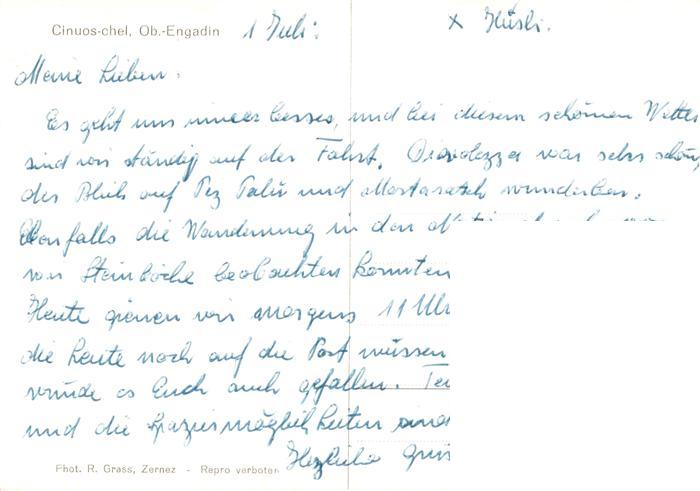 Cinuos-chel, Ob.-Engadin 1 Juli: x Hüsli.
Meine Lieben.
Es geht uns immer besser, und bei diesem schönen Wetter
sind wir ständig auf der Fahrt. Diavolezza war sehr schön,
der Blick auf Pez Palü und Mortaratsch wunderbar.
Ebenfalls die Wanderung in den
wir Steinböcke beobachten konnten
Heute gienen wir morgens 11 Uhr
die Leute noch auf die Post müssen
würde es Euch auch gefallen.
und die Spaziermöglichkeiten sind
Phot. R. Grass, Zernez - Repro verboten Herzliche